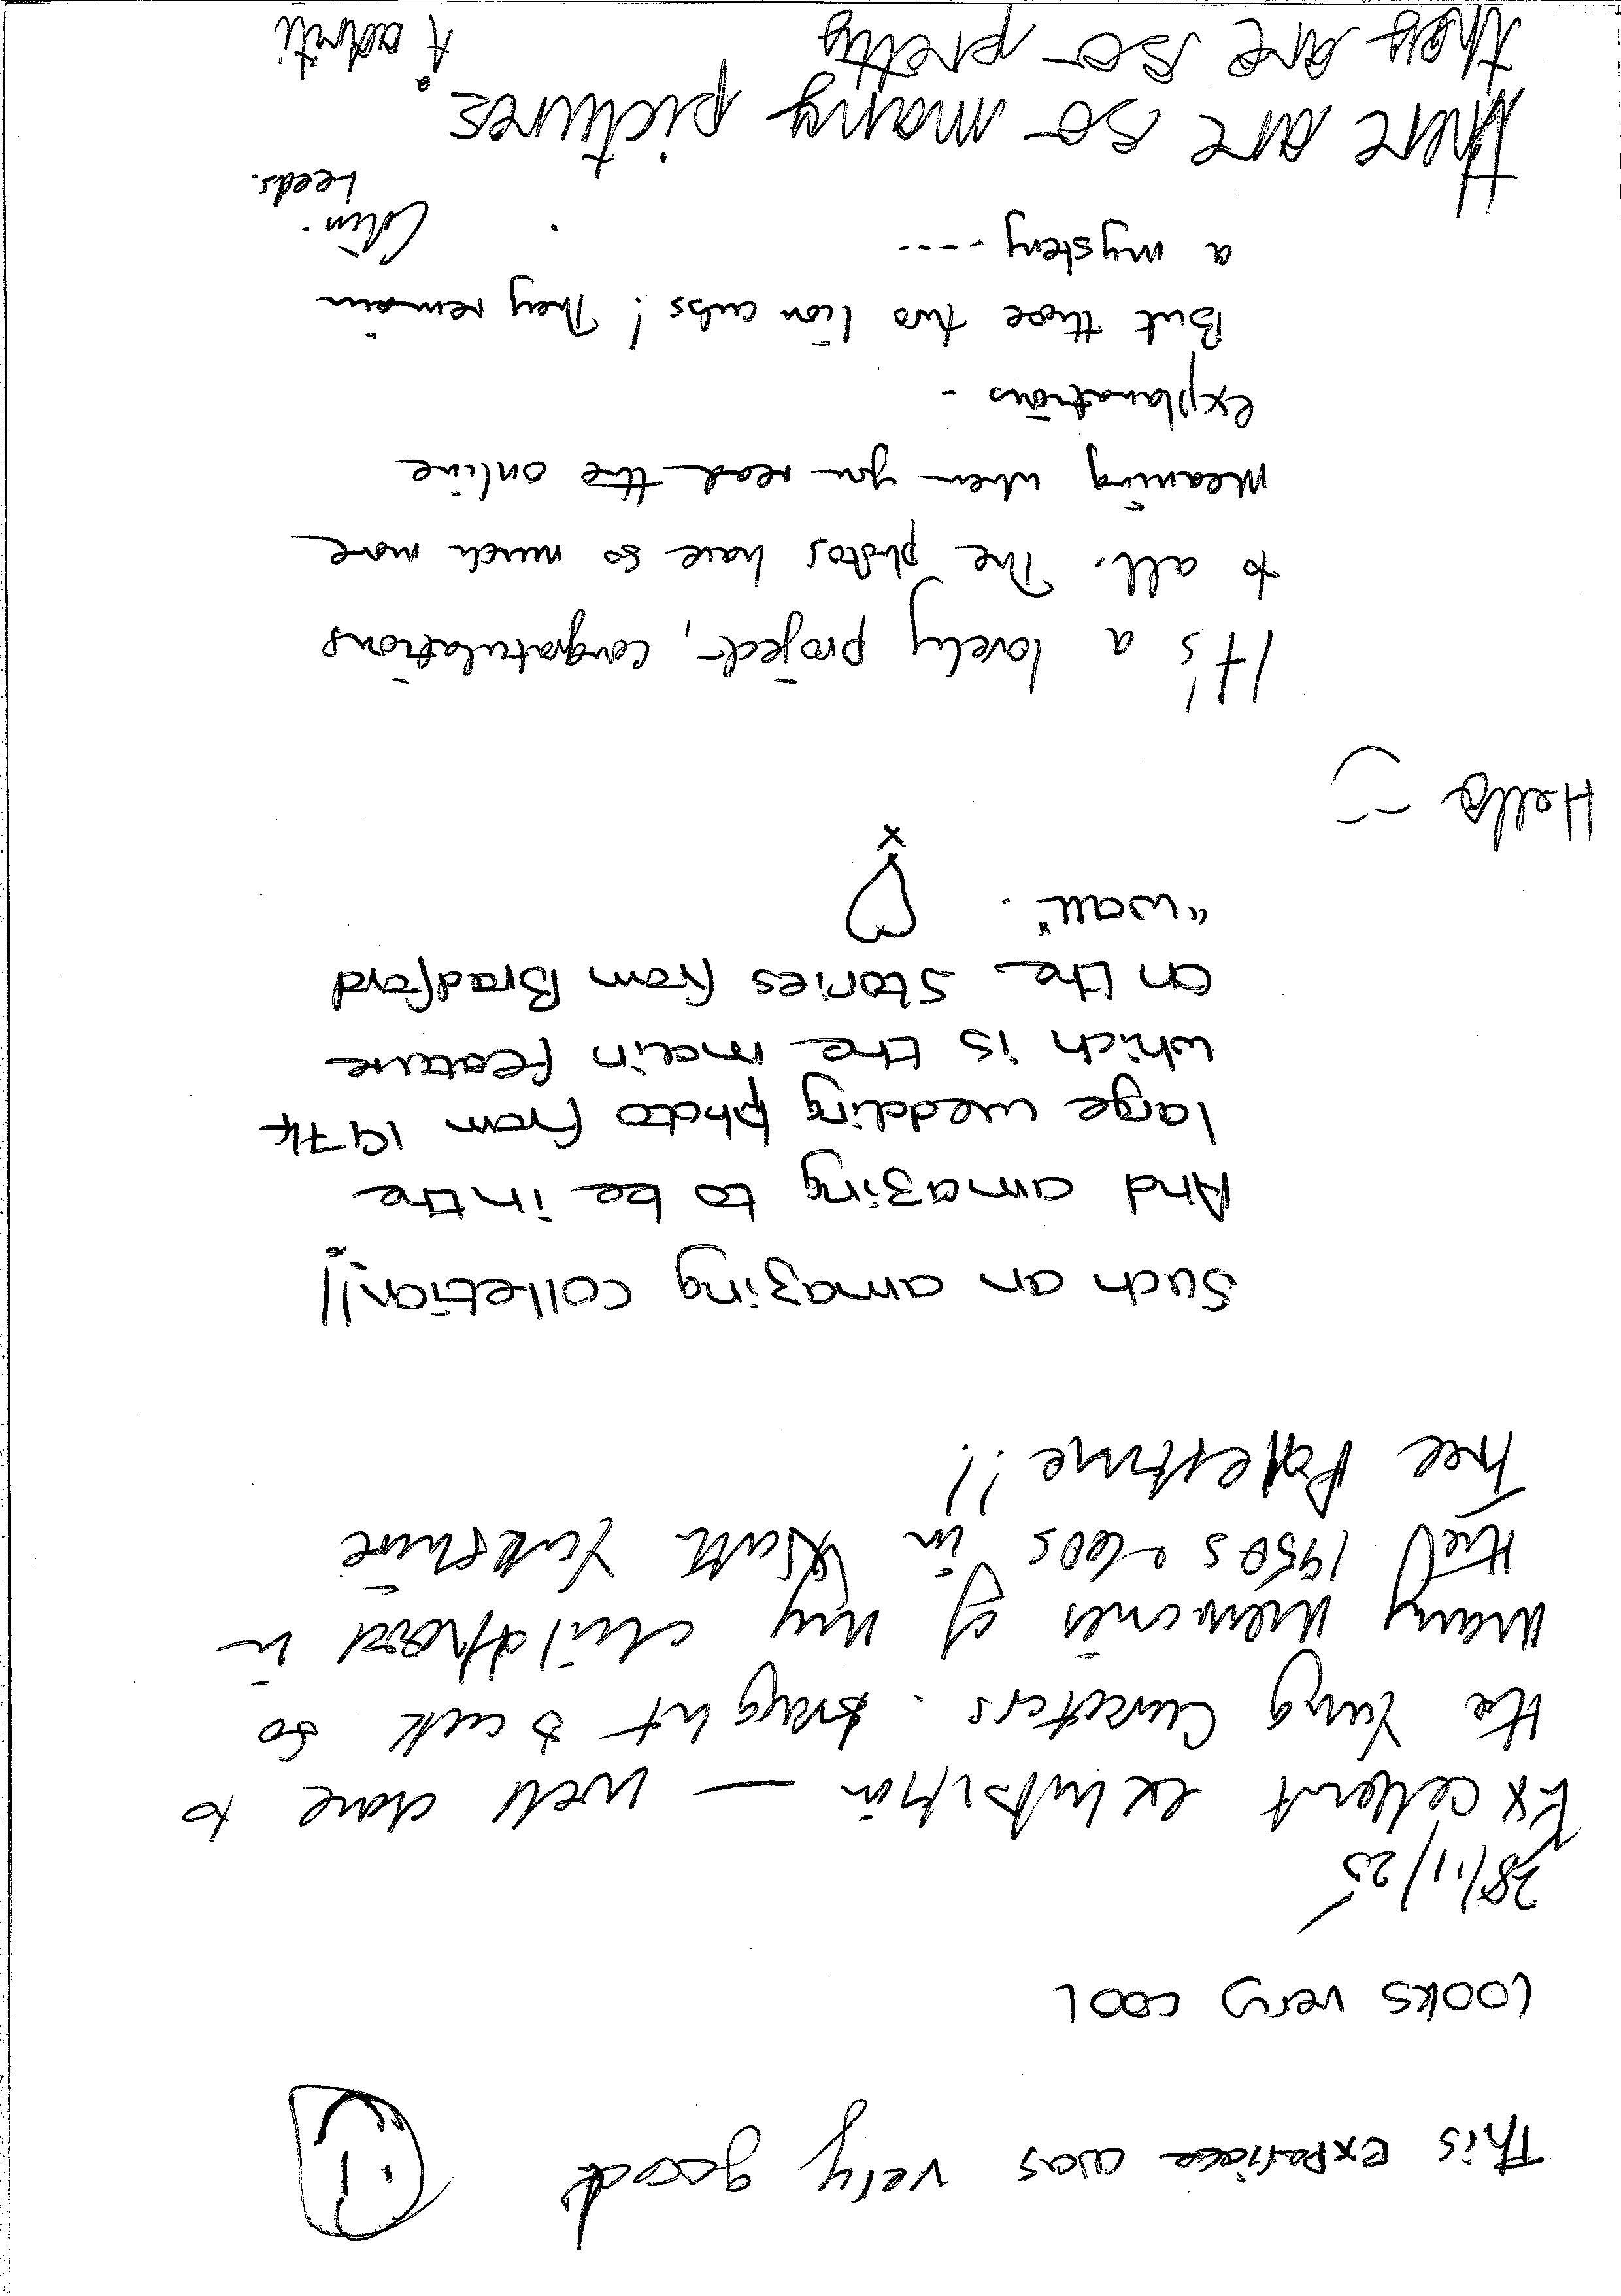 This experience was very good
Looks very cool
28/11/25
Excellent exhibition — well done to
the Young Curators. Brought back so
many memories of my childhood in
the 1950s & 60s in North Yorkshire
Free Palestine!!
Such an amazing collection!!
And amazing to be in the
large wedding photo from 1974
which is the main feature
on the Stories from Bradford
"wall". x
Hello
It's a lovely project, congratulations
to all. The photos have so much more
meaning when you read the online
explanations -
But those two lion cubs! They remain
a mystery ----
Colin.
Leeds.
there are so many pictures
they are so pretty